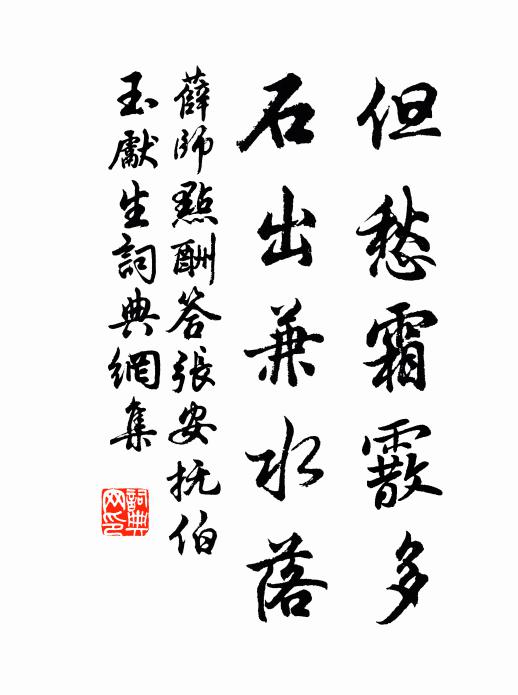 但愁霜霰多
石出兼水落
薛師點酬答張安抚伯
玉獻生詞典網集
詞典网印